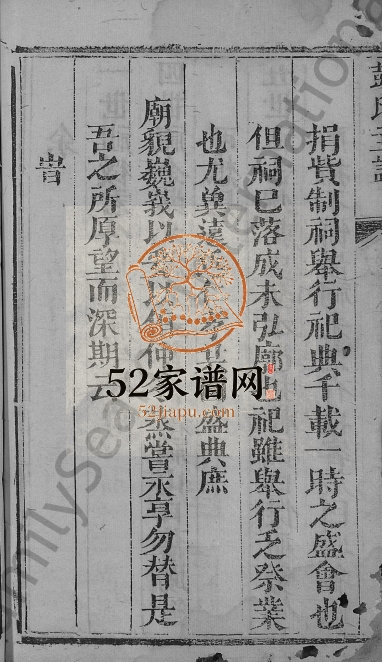 捐貲制祠舉行祀典千載一時之盛會也
但祠已落成未弘廓也祀雖舉行乏祭業
也尤冀遠孝盛典庶
廟貌巍峩以以仰烝嘗永享勿替是
吾之所原望而深期云
旹
52家谱网
52jiapu.com